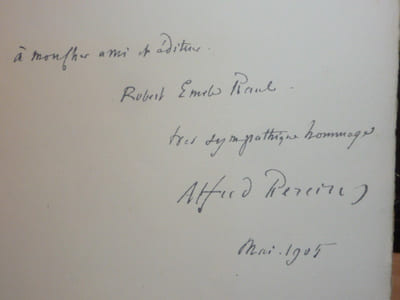 à mon cher ami et éditeur
Robert Emile
très sympathique hommage
Alfred
Mai. 1905